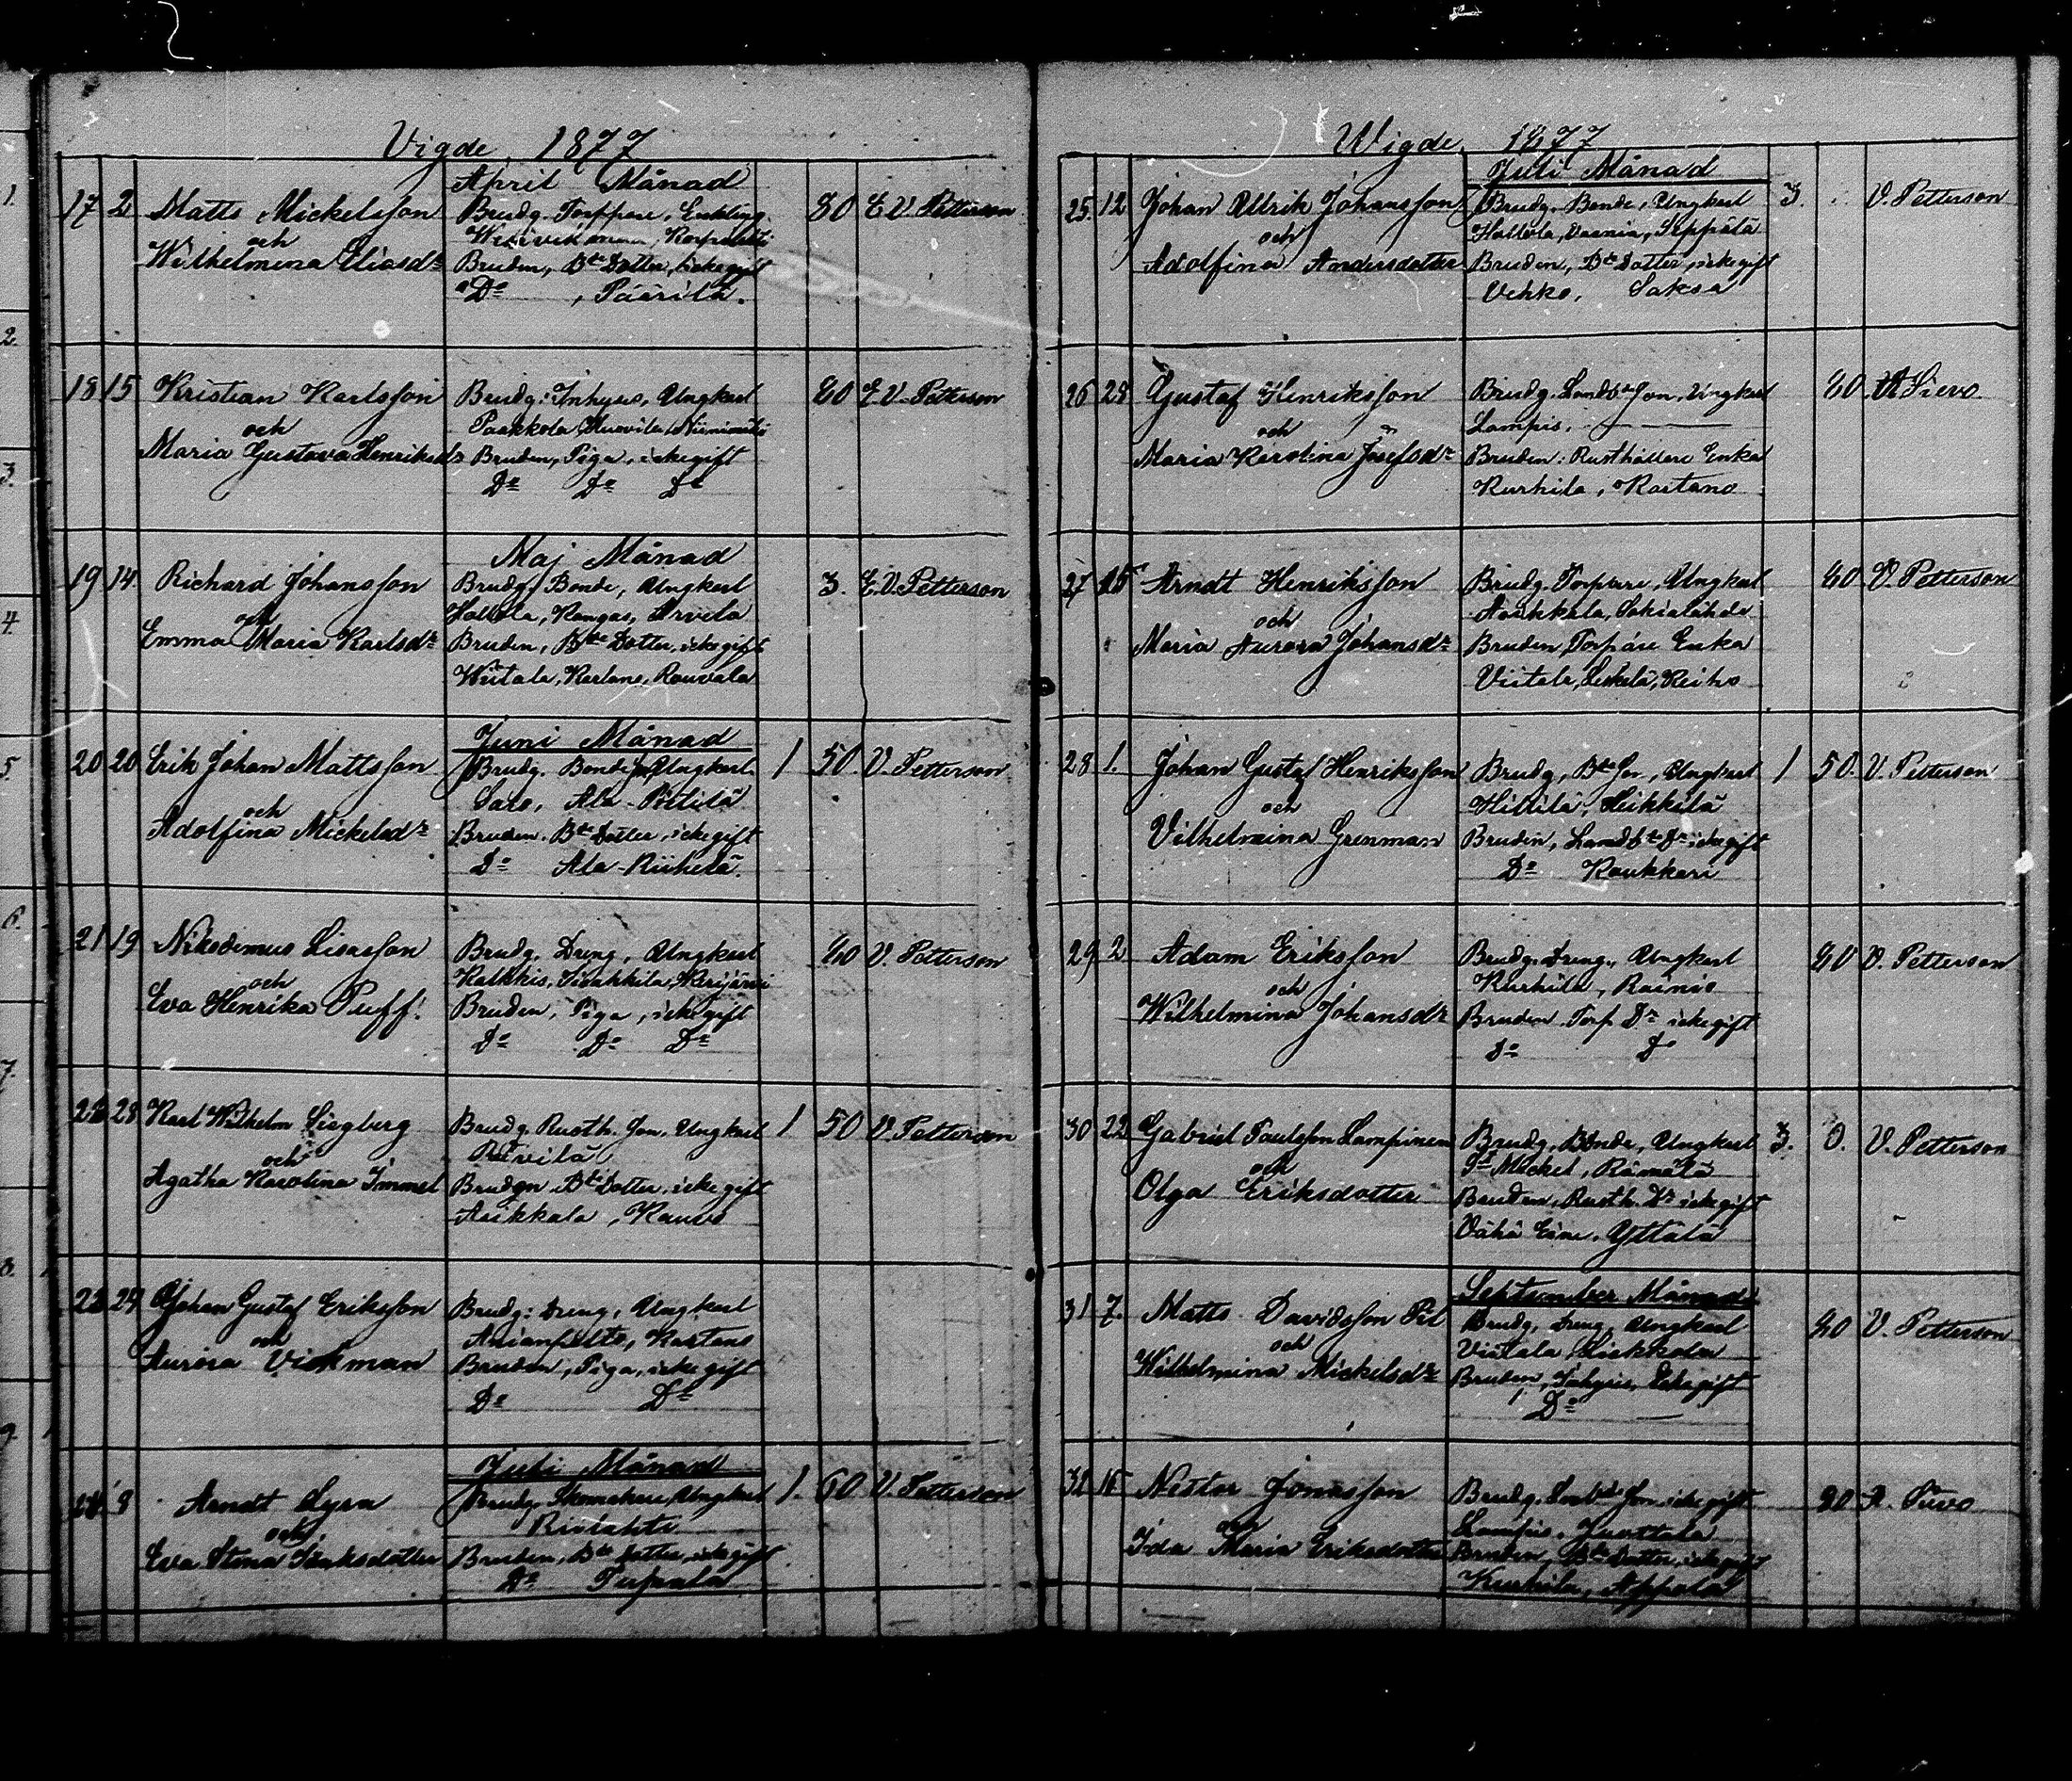 Vigde 1877
April Månad
17 2 Matts Mickelsson
och
Wilhelmina Eliasdr
Brudg. Torppare, Enkling
Bruden, Bde Dotter, icke gift
Do, Päärilä.
80 E V Petterson
18 15 Kristian Karlsson
och
Maria Gustava Henriksdr
Brudg: Inhyses, Ungkarl
Paakkola, Huovila, Niinimäki
Bruden, Piga, icke gift
Do Do Do
60 E. V. Petterson
Maj Månad
19 14 Richard Johansson
och
Emma Maria Karlsdr
Brudg, Bonde, Ungkarl
Hollola, Kangas, Arvela
Bruden, Bde Dotter, icke gift
Wiitala, Kartano, Rouvala
3. E. V. Petterson
Juni Månad
20 20 Erik Johan Mattsson
och
Adolfina Mickelsdr
Brudg. Bonde, Ungkarl
Salo, Ala-
Bruden. Bde Dotter, icke gift
Do Ala-Riihelä.
1 50 V. Petterson
21 19 Nikodemus Lisasson
och
Eva Henrika Puff.
Brudg. Dreng, Ungkarl
Kalkkis,
Bruden, Piga, icke gift
Do Do Do
60 V. Petterson
22 28 Karl Wilhelm Siegberg
och
Agatha Karolina Immel
Brudg. Rusth. Son, Ungkarl
Bruden Bde Dotter, icke gift
Asikkala, Kauvo
1 50 V. Petterson
23 29 Johan Gustaf Eriksson
och
Aurora Vickman
Brudg: Dreng, Ungkarl
Anianpelto, Kartano
Bruden, Piga, icke gift
Do Do
Juli Månad
24 8 Arndt Lyra
och
Eva Stina Isaksdotter
Brudg. Skomakare, Ungkarl
Bruden, Bde Dotter, icke gift
Do
1. 60 V. Petterson
Wigde 1877
Juli Månad
25. 12 Johan Ulrik Johansson
och
Adolfina Andersdotter
Brudg. Bonde, Ungkarl
Hollola, Vaania, Seppälä
Bruden, Bde Dotter, icke gift
Vehko, Saksa
3. V. Petterson
26 28 Gustaf Henriksson
och
Maria Karolina Josefsdr
Brudg. Landbde Son, Ungkarl
Lampis.
Bruden: Rusthållare Enka
Kurhila, Kartano
60. A Sievo.
27 15 Arndt Henriksson
och
Maria Aurora Johansdr
Brudg. Torpare, Ungkarl
Asikkala,
Bruden, Torpare Enka
Viitala,
60 V. Petterson
28 1. Johan Gustaf Henriksson
och
Vilhelmina Grenman
Brudg, Bde Son, Ungkarl
Hillilä, Heikkilä
Bruden, Landbde Dr icke gift
Do Kaukkari
1 50. V. Petterson
29 2 Adam Eriksson
och
Wilhelmina Johansdr
Brudg. Dreng., Ungkarl
Kurhila, Rainio
Bruden. Torp. Dr icke gift
Do Do
60 V. Petterson
30 22 Gabriel Paulsson Lampinen
och
Olga Eriksdotter
Brudg. Bonde, Ungkarl
St Mickel, Rämälä
Bruden, Rusth. Dr icke gift
Vähä Eine, Yttälä
3. 0. V. Petterson
September Månad
31 7. Matts Davidsson Pil
och
Wilhelmina Mickelsdr
Brudg, Dreng, Ungkarl
Viitala
Bruden, Inhyses, icke gift
Do
60 V. Petterson
32 16 Nestor Jonasson
och
Ida Maria Eriksdotter
Brudg. Landbde Son, icke gift
Lampis, Junttala
Bruden, Bde Dotter, icke gift
Kurhila, Appala